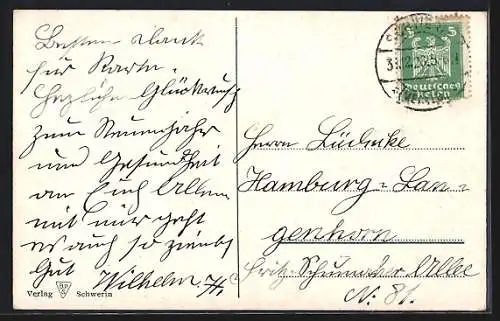 Besten Dank
für Karte.
Herzliche Glückwunsch
zum Neuenjahr
und Gesundheit
an Euch Allen
mit mir geht
es auch so ziemli
Gut Wilhelm
Verlag Schwerin
5 5
Deutsches
Reich
Herrn Lüdecke
Hamburg=Lan-
genhorn
Fritz=Schumacher Allee
N: 81.